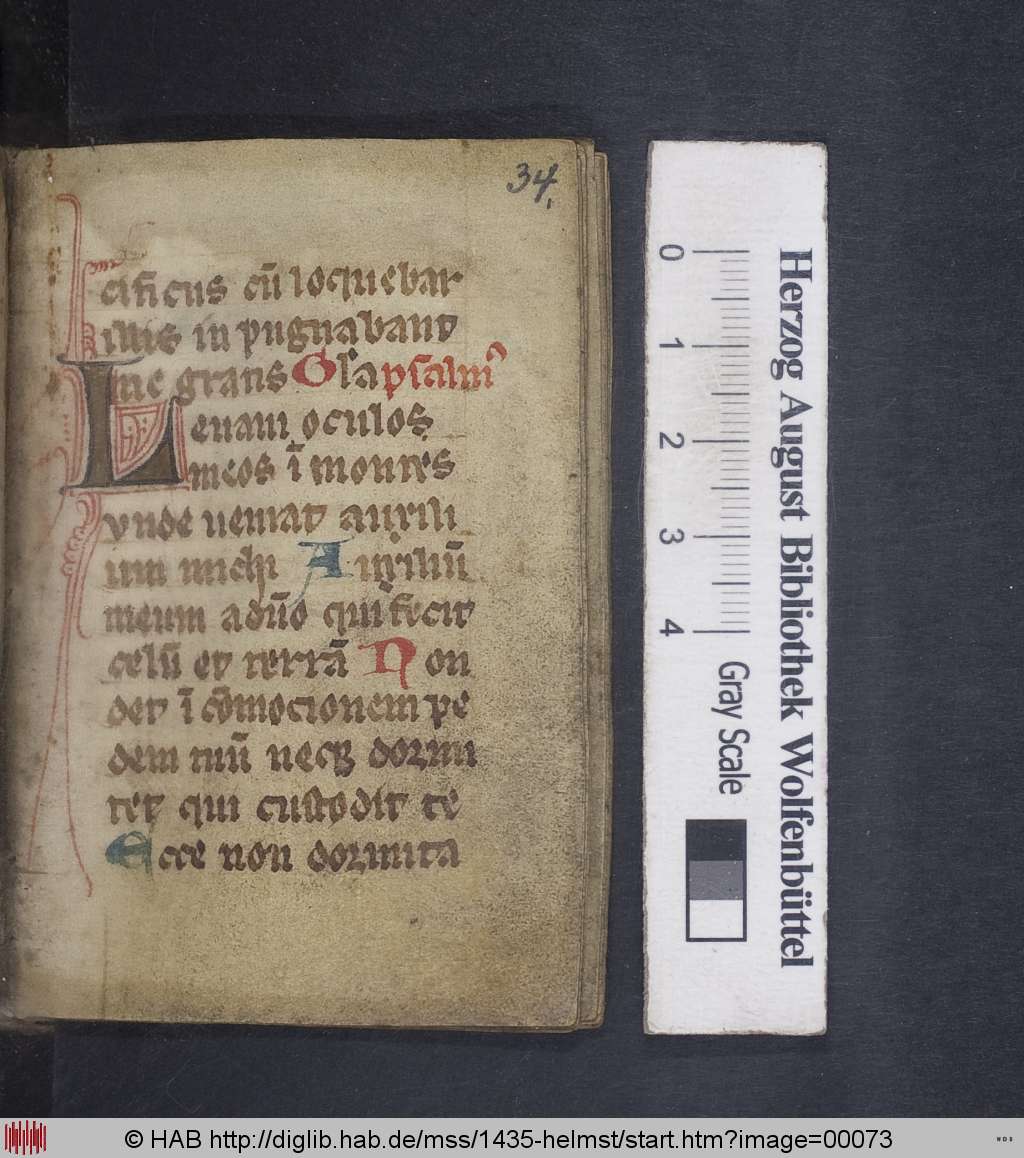 34.
cifi cus cū loquebar
illis in pugnabant
me gratis Gla psalmꝰ
Leuaui oculos
meos ī montes
vnde ueniat auxili
um michi Auxiliū
meum a dn̄o qui fecit
celū et terrā Non
det ī cōmocionem pe
dem tuū neqꝫ dormi
tet qui custodit te
Ecce non dormita
0
1
2
3
4
Gray Scale
Herzog August Bibliothek Wolfenbüttel
© HAB http://diglib.hab.de/mss/1435-helmst/start.htm?image=00073